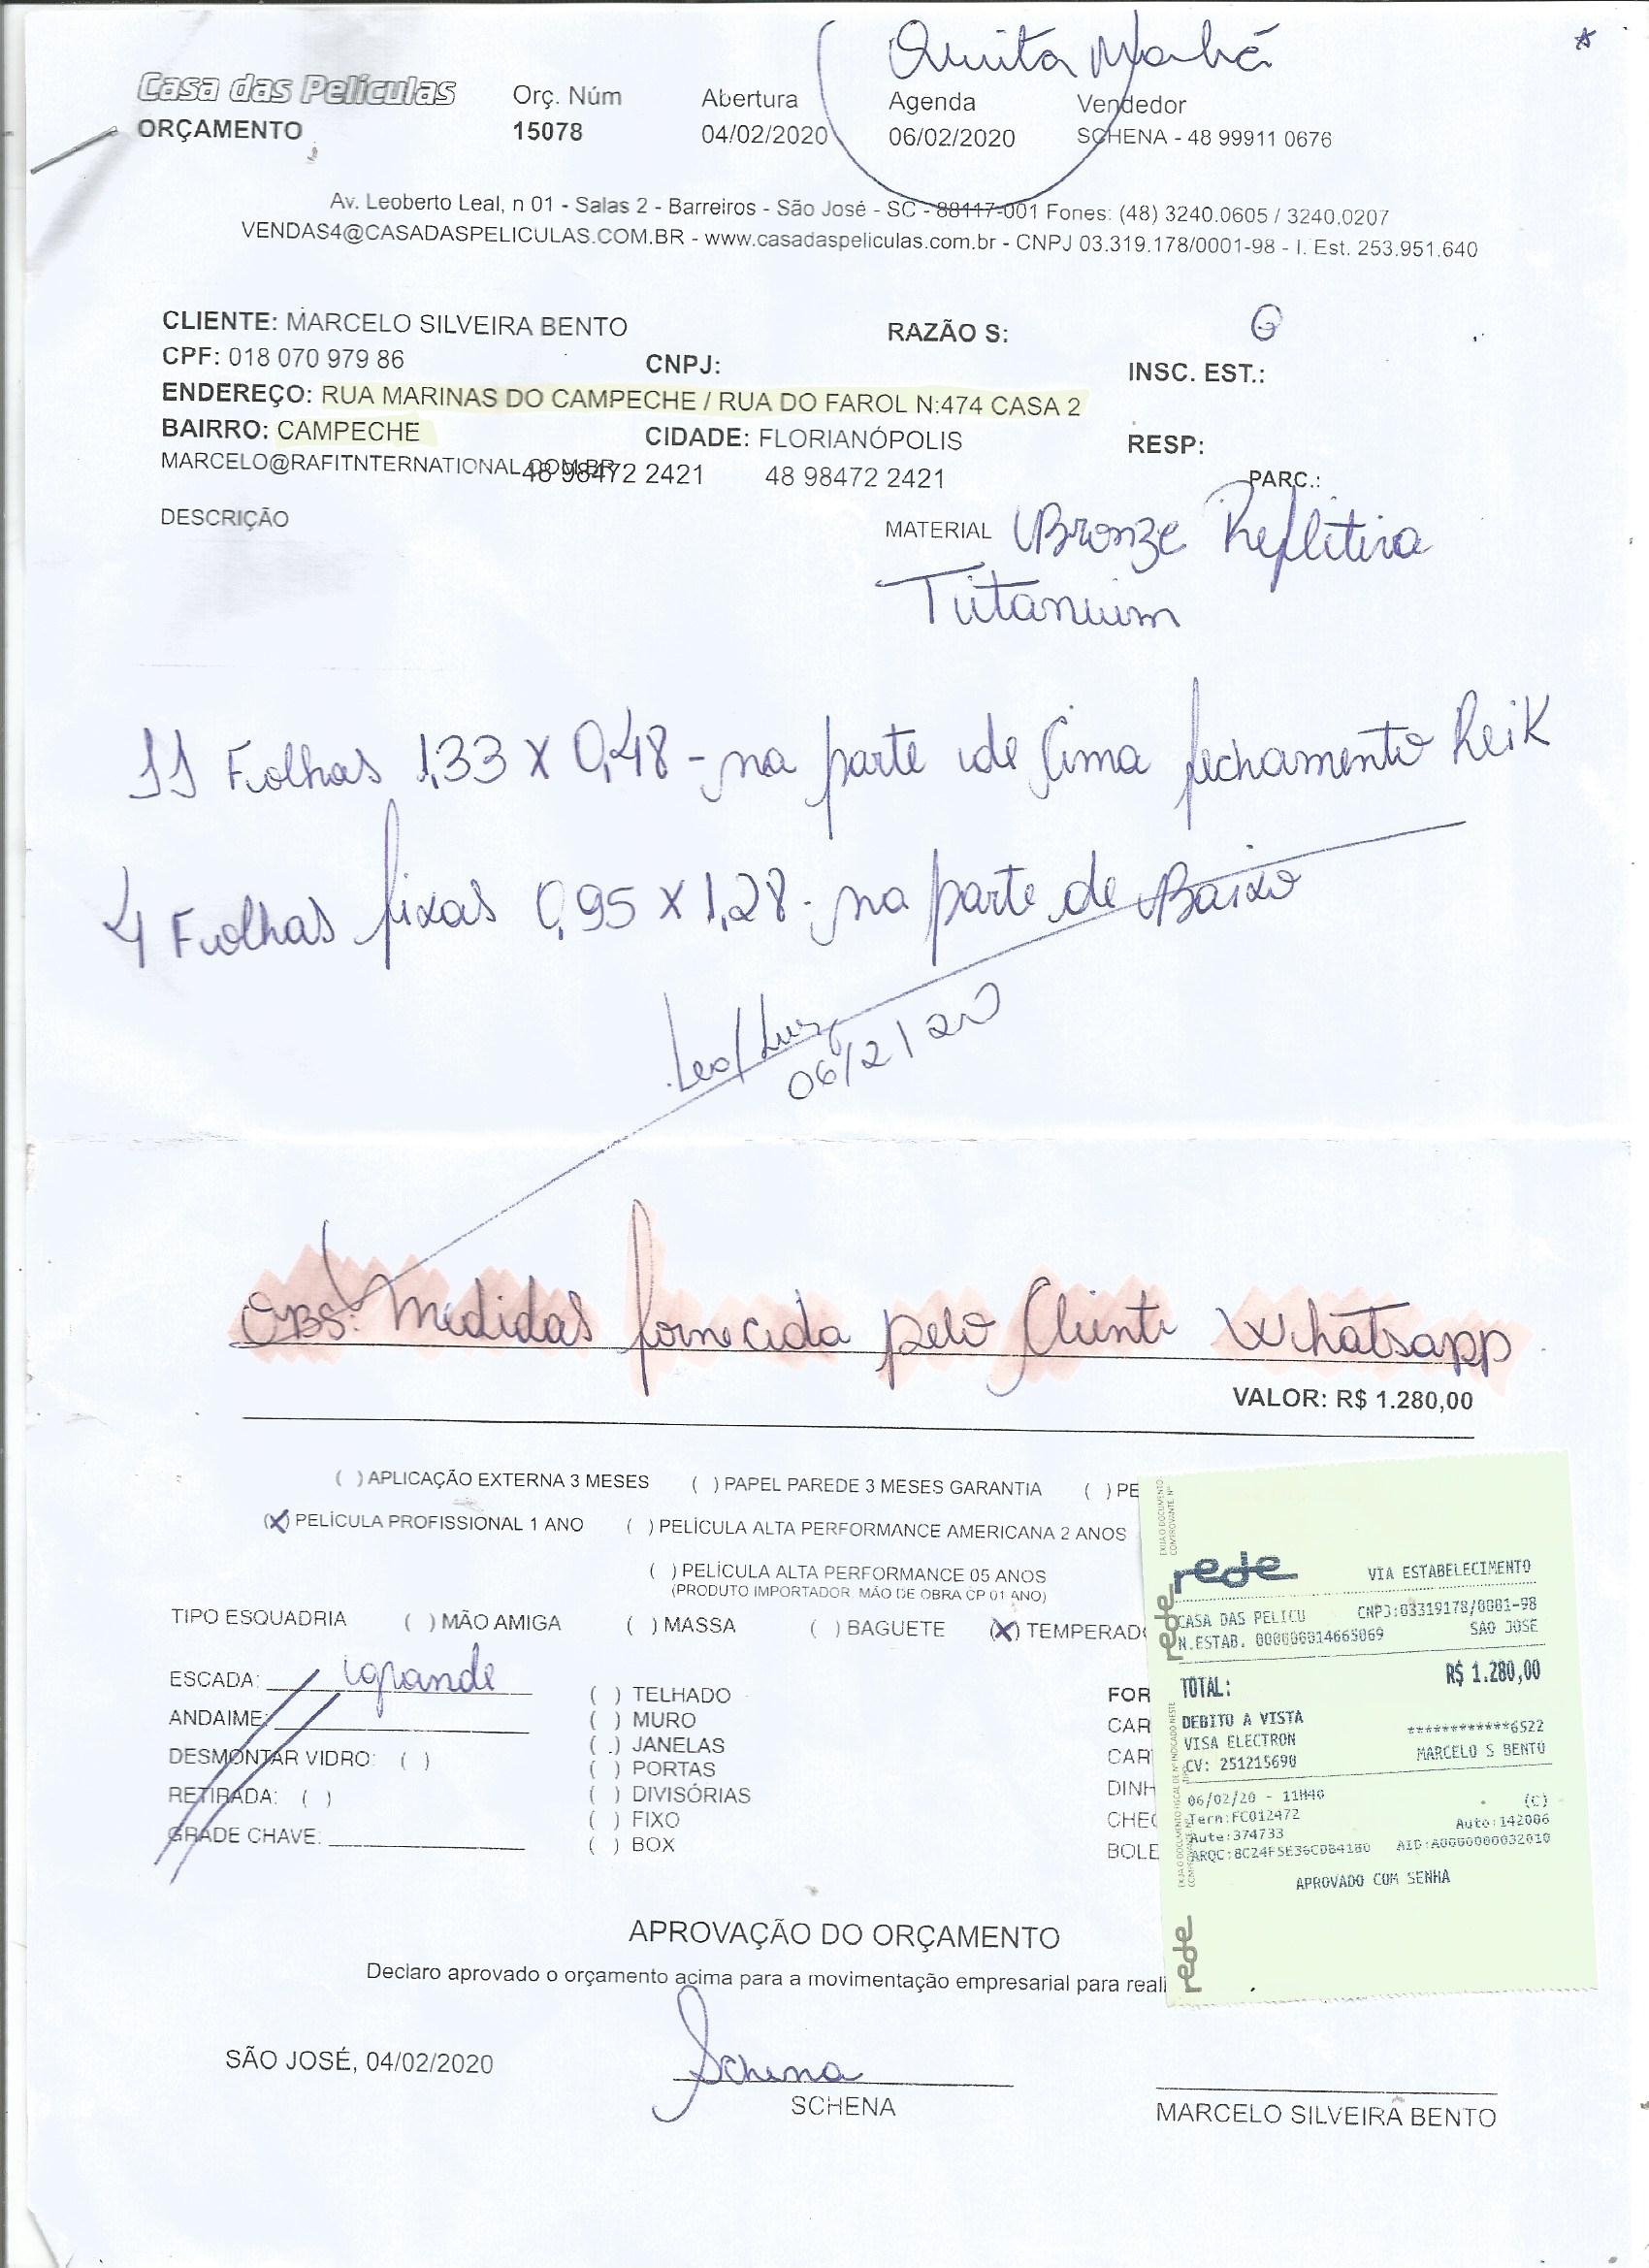 Quita Manhã
Casa das Películas Orç. Núm Abertura Agenda Vendedor
ORÇAMENTO 15078 04/02/2020 06/02/2020 SCHENA - 48 99911 0676
Av. Leoberto Leal, n 01 - Salas 2 - Barreiros - São José - SC - 88117-001 Fones: (48) 3240.0605 / 3240.0207
VENDAS4@CASADASPELICULAS.COM.BR - www.casadaspeliculas.com.br - CNPJ 03.319.178/0001-98 - I. Est. 253.951.640
CLIENTE: MARCELO SILVEIRA BENTO RAZÃO S:
CPF: 018 070 979 86 CNPJ: INSC. EST.:
ENDEREÇO: RUA MARINAS DO CAMPECHE / RUA DO FAROL N:474 CASA 2
BAIRRO: CAMPECHE CIDADE: FLORIANÓPOLIS RESP:
MARCELO@RAFITNTERNATIONAL.COM.BR 48 98472 2421 48 98472 2421 PARC.:
DESCRIÇÃO MATERIAL Bronze Reflitiva
Titanium
11 Folhas 1,33 x 0,48 - na parte de Cima fechamento Reik
4 Folhas fixas 0,95 x 1,28 - na parte de Baixo
Leo/Luiz
06/2/20
OBS: Medidas fornecida pelo Cliente Whatsapp
VALOR: R$ 1.280,00
( ) APLICAÇÃO EXTERNA 3 MESES ( ) PAPEL PAREDE 3 MESES GARANTIA ( ) PE
(X) PELÍCULA PROFISSIONAL 1 ANO ( ) PELÍCULA ALTA PERFORMANCE AMERICANA 2 ANOS
( ) PELÍCULA ALTA PERFORMANCE 05 ANOS
(PRODUTO IMPORTADOR MÃO DE OBRA CP 01 ANO)
TIPO ESQUADRIA ( ) MÃO AMIGA ( ) MASSA ( ) BAGUETE (X) TEMPERADO
ESCADA: grande
ANDAIME:
DESMONTAR VIDRO: ( )
RETIRADA: ( )
GRADE CHAVE:
( ) TELHADO
( ) MURO
( ) JANELAS
( ) PORTAS
( ) DIVISÓRIAS
( ) FIXO
( ) BOX
FOR
CAR
CAR
DINH
CHEC
BOLE
rede VIA ESTABELECIMENTO
CASA DAS PELICU CNPJ:03319178/0001-98
N.ESTAB. 000000014665069 SAO JOSE
TOTAL: R$ 1.280,00
DEBITO A VISTA ************6522
VISA ELECTRON MARCELO S BENTO
CV: 251215690
06/02/20 - 11H40 (C)
Term:FC012472 Auto:142006
Aute:374733 AID:A0000000032010
ARQC:8C24F5E36CDB41B0
APROVADO COM SENHA
rede
rede
APROVAÇÃO DO ORÇAMENTO
Declaro aprovado o orçamento acima para a movimentação empresarial para reali
SÃO JOSÉ, 04/02/2020 Schena
SCHENA MARCELO SILVEIRA BENTO